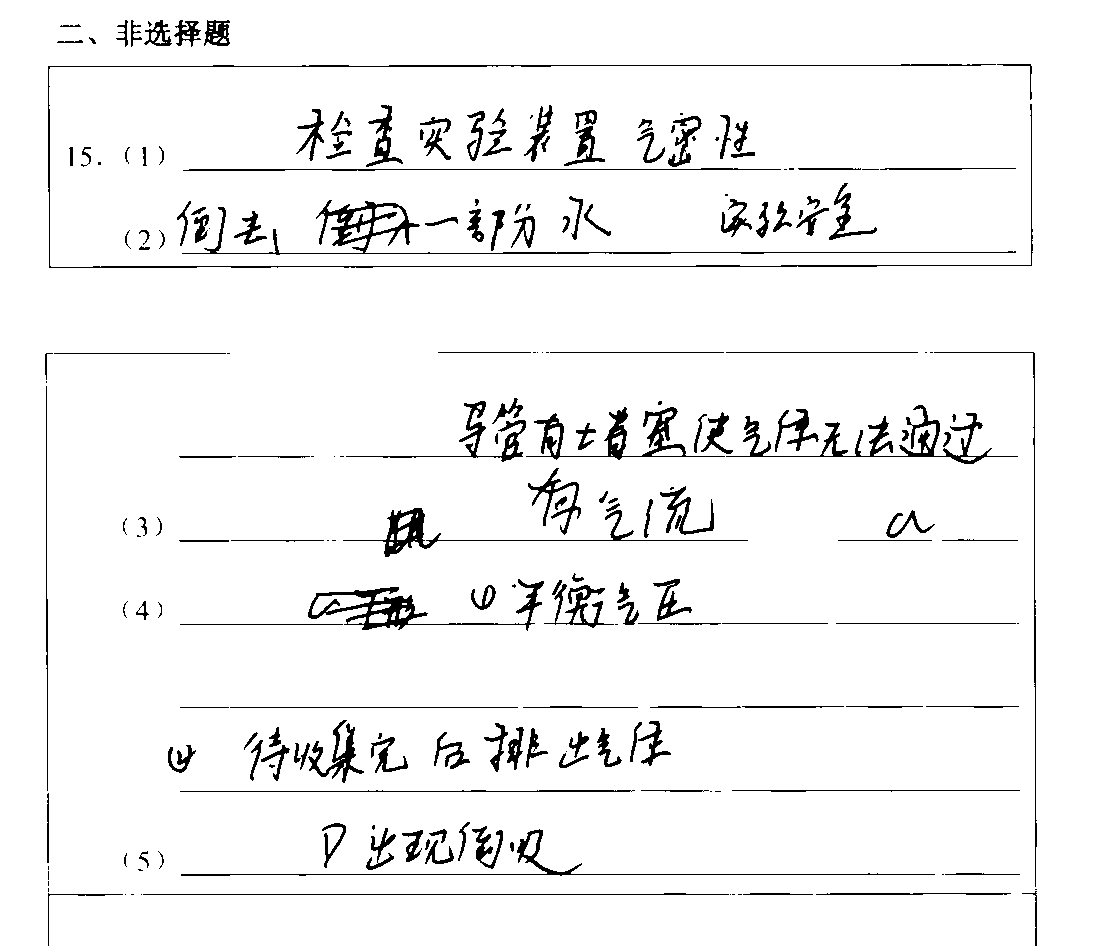 二、非选择题
15.（1） 检查实验装置气密性
（2）倒去 一部分水 实验安全
导管有堵塞使气体无法通过
（3） 有气流 a
（4） ① 平衡气压
② 待收集完后排出气体
（5） D 出现倒吸